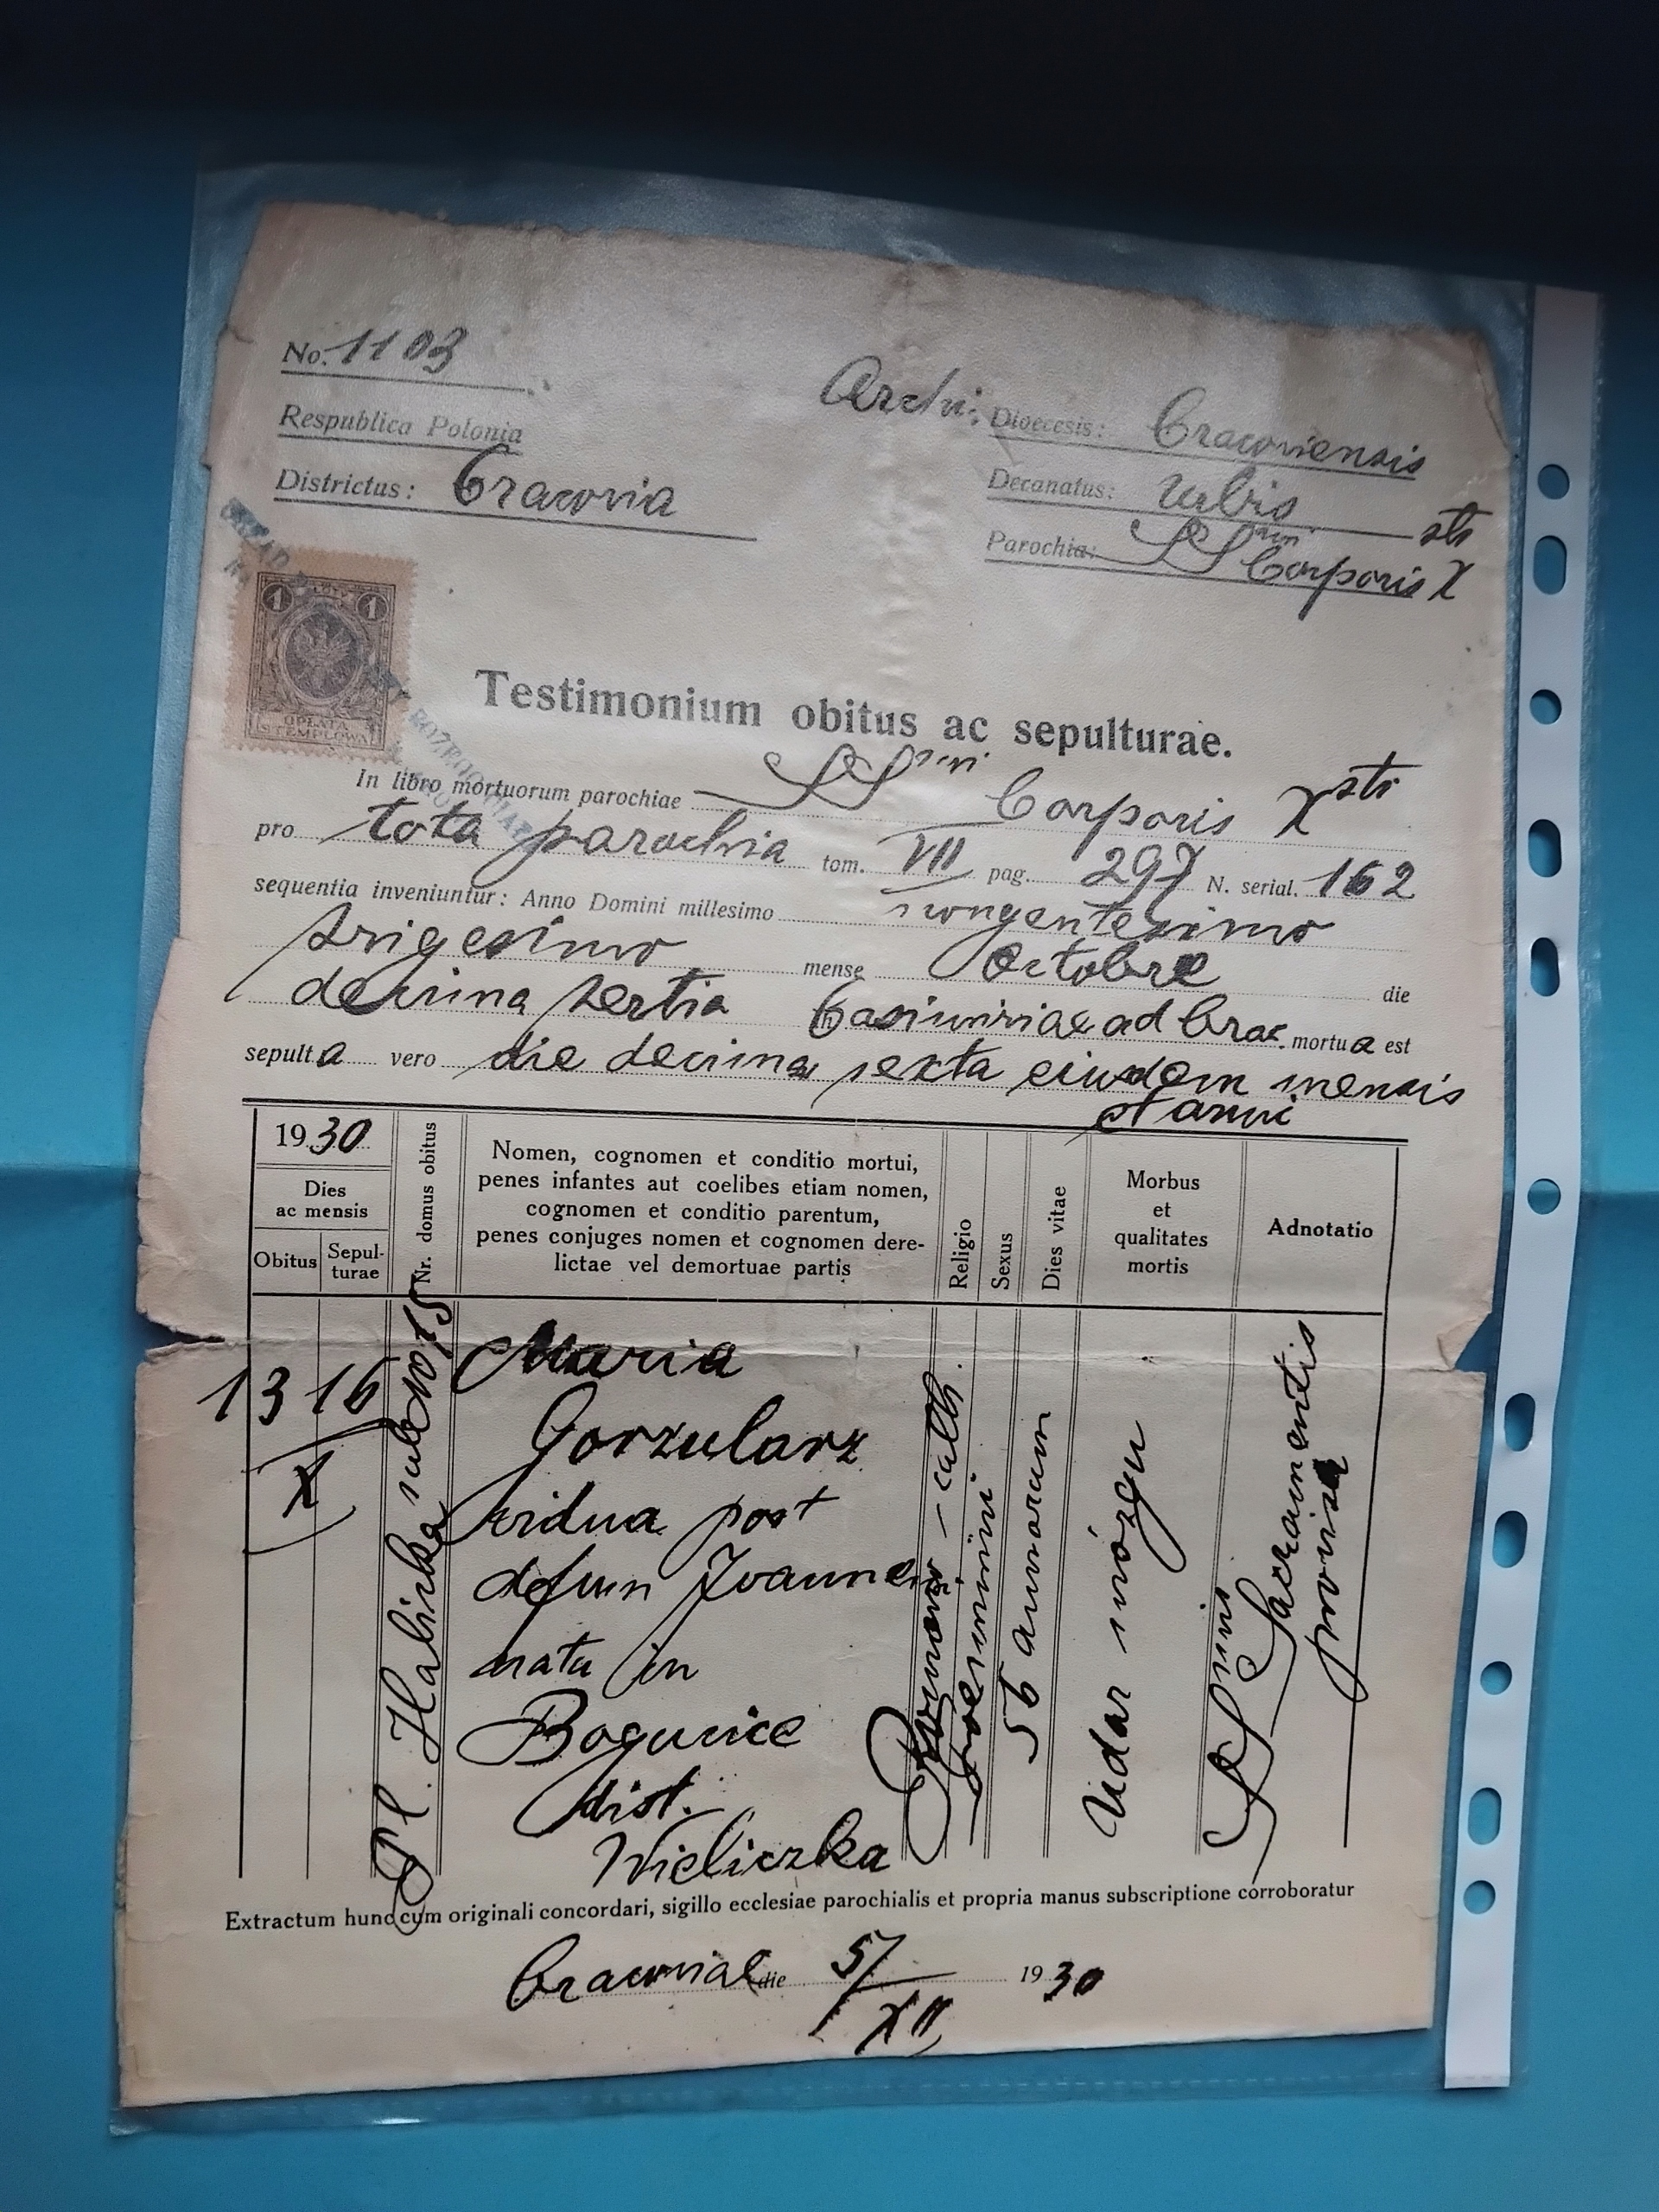 No. 1103
Respublica Polonia
Districtus: Cracovia
Archi. Dioecesis: Cracoviensis
Decanatus: Urbis
Parochia: SSmi Corporis Xsti
1 1
OPŁATA
STEMPLOWA
Testimonium obitus ac sepulturae.
In libro mortuorum parochiae SSmi Corporis Xsti
pro tota parochia tom. VII pag. 297 N. serial. 162
sequentia inveniuntur: Anno Domini millesimo nongentesimo
trigesimo mense Octobre die
decima tertia Casimiriae ad Crac. mortua est
sepulta vero die decima sexta eiusdem mensis
et anni
1930
Dies
ac mensis
Obitus
Sepul-
turae
Nr. domus obitus
Nomen, cognomen et conditio mortui,
penes infantes aut coelibes etiam nomen,
cognomen et conditio parentum,
penes conjuges nomen et cognomen dere-
lictae vel demortuae partis
Religio
Sexus
Dies vitae
Morbus
et
qualitates
mortis
Adnotatio
13 16
X
Pl. Halicka sub No 15
Maria
Gorzularz
vidua post
defun Joanne
nata in
Bogucice
dist.
Wieliczka
Romano-cath.
foeminini
56 annorum
Udar mózgu
SSmis Sacramentis
provisa
Extractum hunc cum originali concordari, sigillo ecclesiae parochialis et propria manus subscriptione corroboratur
Cracoviae die 5/XII 1930